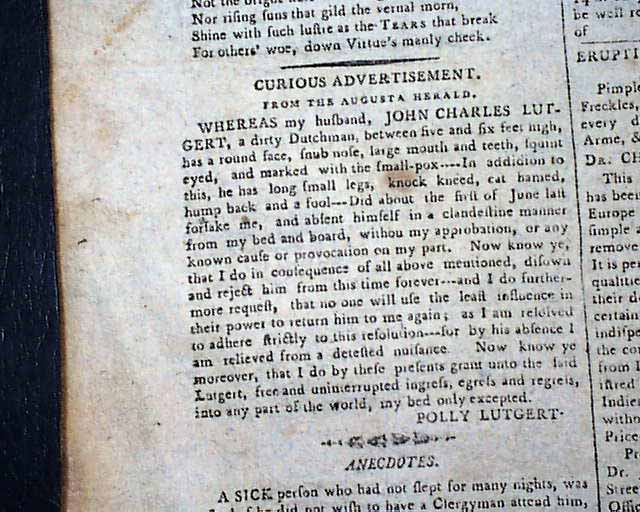 Nor rising suns that gild the vernal morn,
Shine with such lustre as the TEARS that break
For others' woe, down Virtue's manly cheek.
CURIOUS ADVERTISEMENT.
FROM THE AUGUSTA HERALD.
WHEREAS my husband, JOHN CHARLES LUT-
GERT, a dirty Dutchman, between five and six feet high,
has a round face, snub nose, large mouth and teeth, squint
eyed, and marked with the small-pox----In addicion to
this, he has long small legs, knock kneed, cat hamed,
hump back and a fool---Did about the first of June last
forsake me, and absent himself in a clandestine manner
from my bed and board, withou my approbation, or any
known cause or provocation on my part. Now know ye,
that I do in consequence of all above mentioned, disown
and reject him from this time forever---and I do further-
more request, that no one will use the least influence in
their power to return him to me again; as I am resolved
to adhere strictly to this resolution---for by his absence I
am relieved from a detested nuisance. Now know ye
moreover, that I do by these presents grant unto the said
Lutgert, free and uninterrupted ingress, egress and regress,
into any part of the world, my bed only excepted.
POLLY LUTGERT.
ANECDOTES.
A SICK person who had not slept for many nights, was
he did not wish to have a Clergyman attend him,
be well
of
ERUPTI
Pimple
Freckles,
every d
Arme, &
DR. CH
This
has been
Europe
simple a
remove
It is per
qualitie
their d
certain
indisp
the co
from I
istred
Indie
witho
Price
Pr
Dr.
Stree
Offi